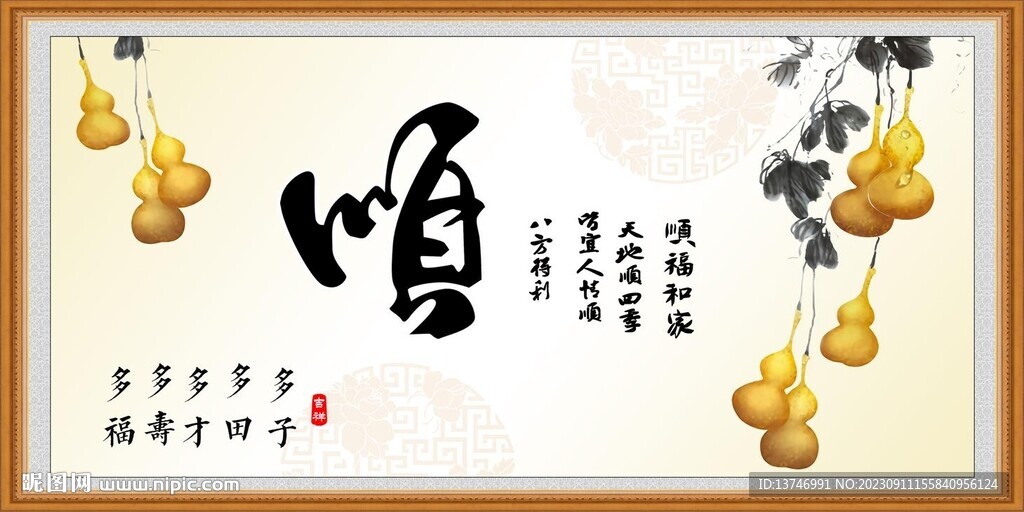 順
順福和家
天地順四季
皆宜人情順
八方得利
多子
多田
多才
多壽
多福
吉祥
昵图网 www.nipic.com
ID:13746991 NO:20230911155840956124